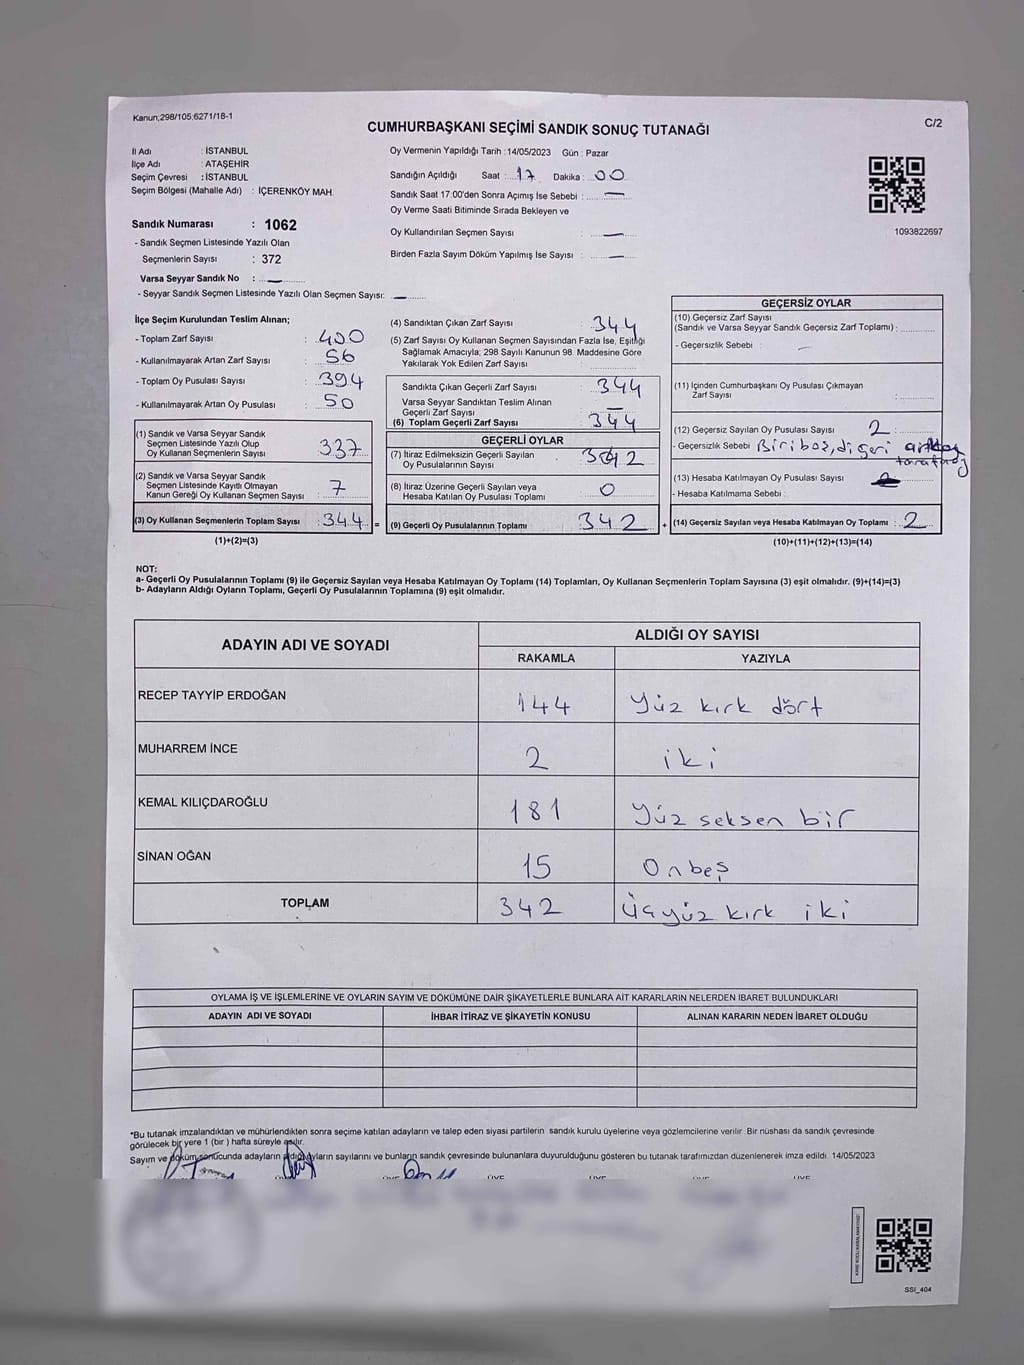 Kanun;298/105;6271/18-1
CUMHURBAŞKANI SEÇİMİ SANDIK SONUÇ TUTANAĞI
C/2
İl Adı : İSTANBUL
İlçe Adı : ATAŞEHİR
Seçim Çevresi : İSTANBUL
Seçim Bölgesi (Mahalle Adı) : İÇERENKÖY MAH.
Sandık Numarası : 1062
- Sandık Seçmen Listesinde Yazılı Olan
Seçmenlerin Sayısı : 372
Varsa Seyyar Sandık No : —
- Seyyar Sandık Seçmen Listesinde Yazılı Olan Seçmen Sayısı: —
Oy Vermenin Yapıldığı Tarih :14/05/2023 Gün : Pazar
Sandığın Açıldığı Saat : 17 Dakika : 00
Sandık Saat 17:00'den Sonra Açımış İse Sebebi : —
Oy Verme Saati Bitiminde Sırada Bekleyen ve
Oy Kullandırılan Seçmen Sayısı : —
Birden Fazla Sayım Döküm Yapılmış İse Sayısı : —
1093822697
İlçe Seçim Kurulundan Teslim Alınan;
- Toplam Zarf Sayısı : 400
- Kullanılmayarak Artan Zarf Sayısı : 56
- Toplam Oy Pusulası Sayısı : 394
- Kullanılmayarak Artan Oy Pusulası : 50
(1) Sandık ve Varsa Seyyar Sandık
Seçmen Listesinde Yazılı Olup
Oy Kullanan Seçmenlerin Sayısı : 337
(2) Sandık ve Varsa Seyyar Sandık
Seçmen Listesinde Kayıtlı Olmayan
Kanun Gereği Oy Kullanan Seçmen Sayısı : 7
(3) Oy Kullanan Seçmenlerin Toplam Sayısı : 344 =
(1)+(2)=(3)
(4) Sandıktan Çıkan Zarf Sayısı : 344
(5) Zarf Sayısı Oy Kullanan Seçmen Sayısından Fazla İse, Eşitliği
Sağlamak Amacıyla; 298 Sayılı Kanunun 98. Maddesine Göre
Yakılarak Yok Edilen Zarf Sayısı :
Sandıkta Çıkan Geçerli Zarf Sayısı : 344
Varsa Seyyar Sandıktan Teslim Alınan
Geçerli Zarf Sayısı : —
(6) Toplam Geçerli Zarf Sayısı : 344
GEÇERLİ OYLAR
(7) İtiraz Edilmeksizin Geçerli Sayılan
Oy Pusulalarının Sayısı : 342
(8) İtiraz Üzerine Geçerli Sayılan veya
Hesaba Katılan Oy Pusulası Toplamı : 0
(9) Geçerli Oy Pusulalarının Toplamı : 342 +
GEÇERSİZ OYLAR
(10) Geçersiz Zarf Sayısı
(Sandık ve Varsa Seyyar Sandık Geçersiz Zarf Toplamı) :
- Geçersizlik Sebebi : —
(11) İçinden Cumhurbaşkanı Oy Pusulası Çıkmayan
Zarf Sayısı :
(12) Geçersiz Sayılan Oy Pusulası Sayısı : 2
- Geçersizlik Sebebi : Biri boş, diğeri
(13) Hesaba Katılmayan Oy Pusulası Sayısı :
- Hesaba Katılmama Sebebi :
(14) Geçersiz Sayılan veya Hesaba Katılmayan Oy Toplamı : 2
(10)+(11)+(12)+(13)=(14)
NOT:
a- Geçerli Oy Pusulalarının Toplamı (9) ile Geçersiz Sayılan veya Hesaba Katılmayan Oy Toplamı (14) Toplamları, Oy Kullanan Seçmenlerin Toplam Sayısına (3) eşit olmalıdır. (9)+(14)=(3)
b- Adayların Aldığı Oyların Toplamı, Geçerli Oy Pusulalarının Toplamına (9) eşit olmalıdır.
ADAYIN ADI VE SOYADI ALDIĞI OY SAYISI
RAKAMLA YAZIYLA
RECEP TAYYİP ERDOĞAN 144 Yüz kırk dört
MUHARREM İNCE 2 iki
KEMAL KILIÇDAROĞLU 181 Yüz seksen bir
SİNAN OĞAN 15 Onbeş
TOPLAM 342 Üçyüz kırk iki
OYLAMA İŞ VE İŞLEMLERİNE VE OYLARIN SAYIM VE DÖKÜMÜNE DAİR ŞİKAYETLERLE BUNLARA AİT KARARLARIN NELERDEN İBARET BULUNDUKLARI
ADAYIN ADI VE SOYADI İHBAR İTİRAZ VE ŞİKAYETİN KONUSU ALINAN KARARIN NEDEN İBARET OLDUĞU
*Bu tutanak imzalandıktan ve mühürlendikten sonra seçime katılan adayların ve talep eden siyasi partilerin sandık kurulu üyelerine veya gözlemcilerine verilir. Bir nüshası da sandık çevresinde
görülecek bir yere 1 (bir ) hafta süreyle asılır.
Sayım ve döküm sonucunda adayların aldığı oyların sayılarını ve bunların sandık çevresinde bulunanlara duyurulduğunu gösteren bu tutanak tarafımızdan düzenlenerek imza edildi. 14/05/2023
ÜYE ÜYE ÜYE ÜYE
SSİ_404